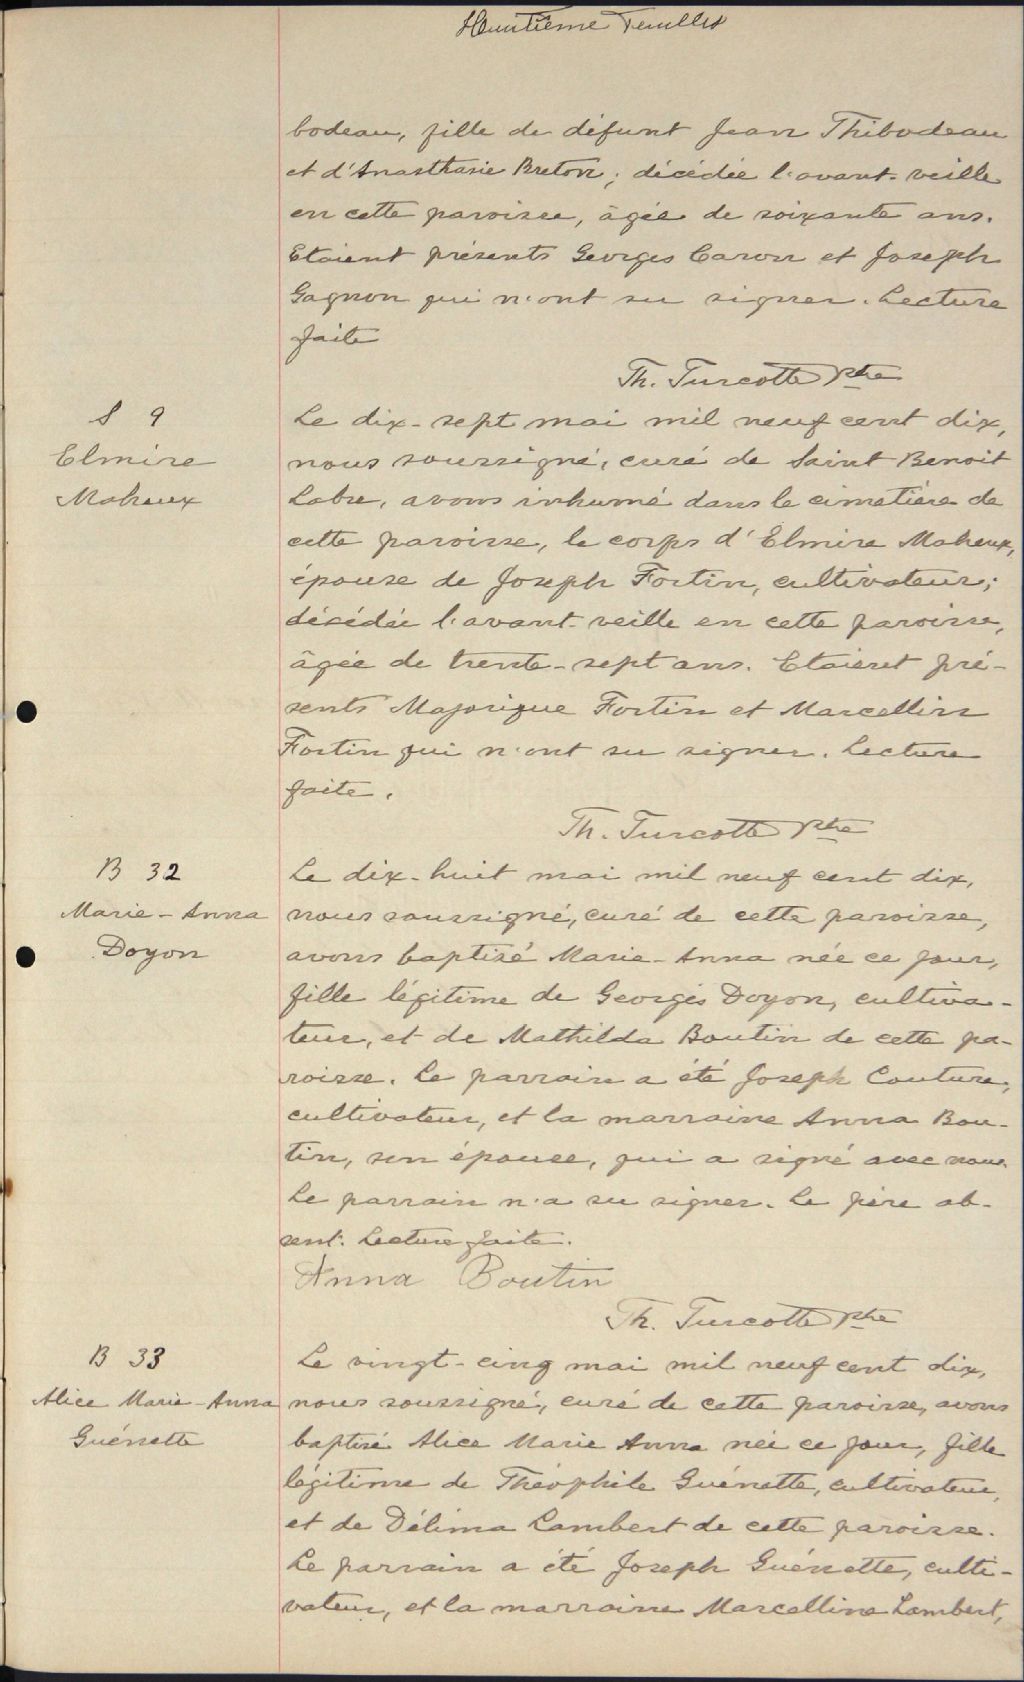 Huitième Feuillet
bodeau, fille de défunt Jean Thibodeau
et d'Anasthasie Breton; décédée l'avant-veille
en cette paroisse, âgée de soixante ans.
Etaient présents Georges Caron et Joseph
Gagnon qui n'ont su signer. Lecture
faite
Th. Turcotte Ptre
S 9
Elmire
Maheux
Le dix-sept mai mil neuf cent dix,
nous soussigné, curé de Saint Benoit
Labre, avons inhumé dans le cimetière de
cette paroisse, le corps d'Elmire Maheux,
épouse de Joseph Fortin, cultivateur;
décédée l'avant-veille en cette paroisse,
âgée de trente-sept ans. Etaient pré-
sents Majorique Fortin et Marcellin
Fortin qui n'ont su signer. Lecture
faite.
Th. Turcotte Ptre
B 32
Marie-Anna
Doyon
Le dix-huit mai mil neuf cent dix,
nous soussigné, curé de cette paroisse,
avons baptisé Marie-Anna née ce jour,
fille légitime de Georges Doyon, cultiva-
teur, et de Mathilda Boutin de cette pa-
roisse. Le parrain a été Joseph Couture,
cultivateur, et la marraine Anna Bou-
tin, son épouse, qui a signé avec nous.
Le parrain n'a su signer. Le père ab-
sent. Lecture faite.
Anna Boutin
Th. Turcotte Ptre
B 33
Alice Marie-Anna
Guénette
Le vingt-cinq mai mil neuf cent dix,
nous soussigné, curé de cette paroisse, avons
baptisé Alice Marie Anna née ce jour, fille
légitime de Théophile Guénette, cultivateur,
et de Délima Lambert de cette paroisse.
Le parrain a été Joseph Guénette, culti-
vateur, et la marraine Marcelline Lambert,